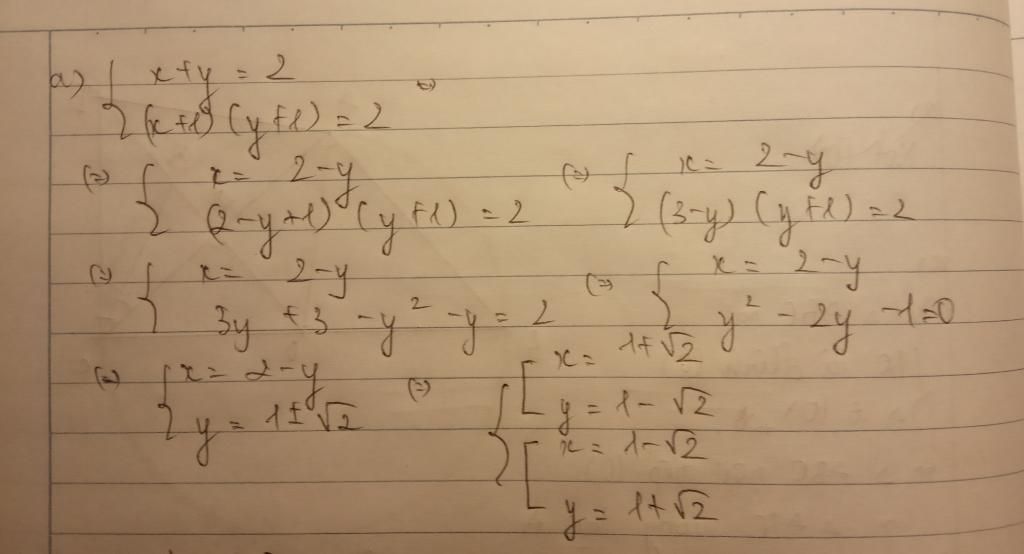 a) { x+y = 2
(x+1) (y+1) = 2 (=)
(=) { x = 2-y
(2-y+1) (y+1) = 2
(=) { x = 2-y
(3-y) (y+1) = 2
(=) { x = 2-y
3y + 3 - y² - y = 2
(=) { x = 2-y
y² - 2y - 1 = 0
(=) { x = 2-y
y = 1±√2
(=) { [ x = 1+√2
y = 1-√2
[ x = 1-√2
y = 1+√2